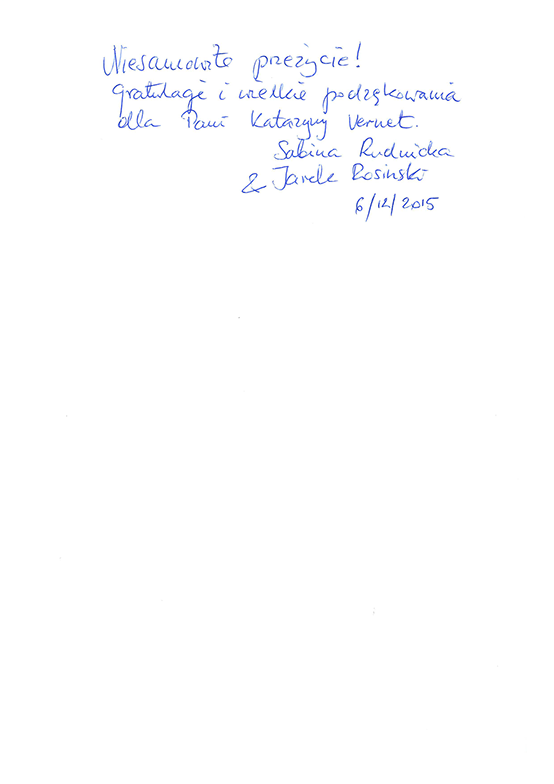 Niesamowite przeżycie!
Gratulacje i wielkie podziękowania
dla Pani Katarzyny Vernet.
Sabina Rudnicka
& Jarek Rosinski
6/12/2015